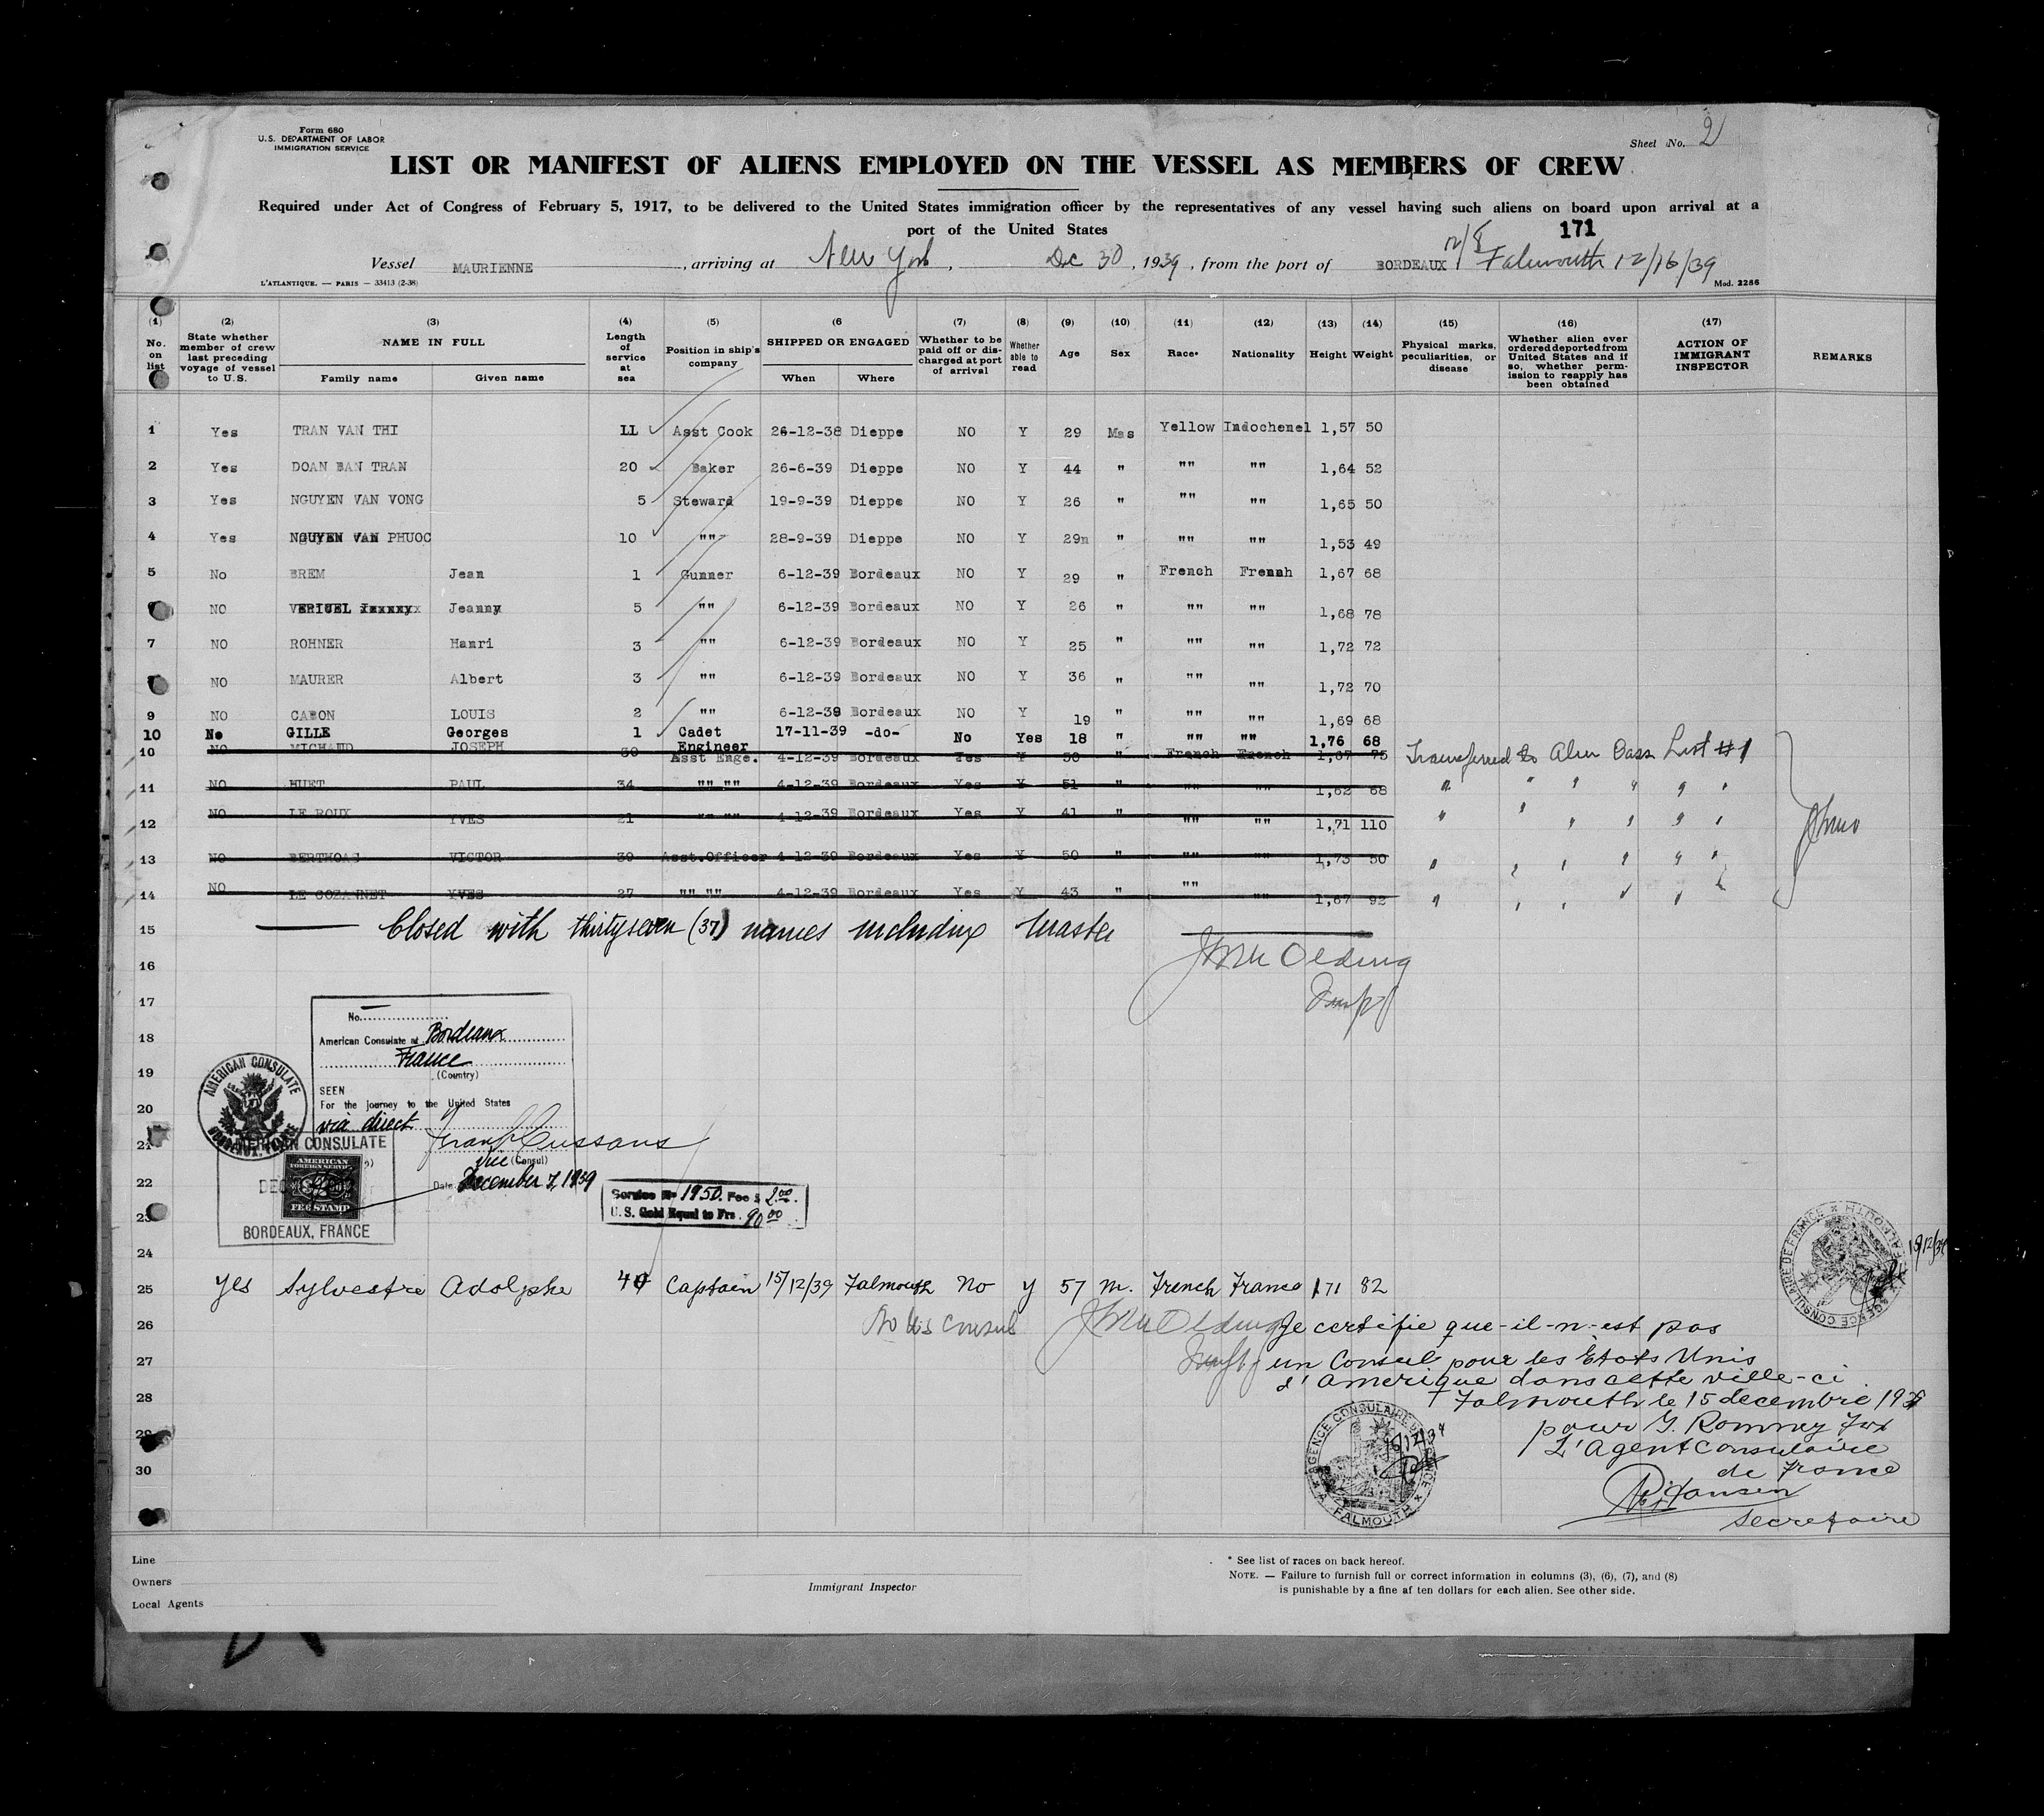 Form 680
U.S. DEPARTMENT OF LABOR
IMMIGRATION SERVICE
Sheet No. 2
LIST OR MANIFEST OF ALIENS EMPLOYED ON THE VESSEL AS MEMBERS OF CREW
Required under Act of Congress of February 5, 1917, to be delivered to the United States immigration officer by the representatives of any vessel having such aliens on board upon arrival at a
port of the United States
171
Vessel MAURIENNE, arriving at New York, Dec 30, 1939, from the port of BORDEAUX 12/8 Falmouth 12/16/39
L'ATLANTIQUE. — PARIS — 33413 (2-38)
Mod. 2286
(1) No. on list
(2) State whether member of crew last preceding voyage of vessel to U.S.
(3) NAME IN FULL Family name Given name
(4) Length of service at sea
(5) Position in ship's company
(6 SHIPPED OR ENGAGED When Where
(7) Whether to be paid off or discharged at port of arrival
(8) Whether able to read
(9) Age
(10) Sex
(11) Race*
(12) Nationality
(13) Height
(14) Weight
(15) Physical marks, peculiarities, or disease
(16) Whether alien ever ordered deported from United States and if so, whether permission to reapply has been obtained
(17) ACTION OF IMMIGRANT INSPECTOR
REMARKS
1 Yes TRAN VAN THI LL Asst Cook 26-12-38 Dieppe NO Y 29 Mas Yellow Indochenel 1,57 50
2 Yes DOAN BAN TRAN 20 Baker 26-6-39 Dieppe NO Y 44 " "" "" 1,64 52
3 Yes NGUYEN VAN VONG 5 Steward 19-9-39 Dieppe NO Y 26 " "" "" 1,65 50
4 Yes NGUYEN VAN PHUOC 10 "" 28-9-39 Dieppe NO Y 29n " "" "" 1,53 49
5 No BREM Jean 1 Gunner 6-12-39 Bordeaux NO Y 29 " French Frennh 1,67 68
NO VERICEL Jeanny 5 "" 6-12-39 Bordeaux NO Y 26 " "" "" 1,68 78
7 NO ROHNER Hanri 3 "" 6-12-39 Bordeaux NO Y 25 " "" "" 1,72 72
NO MAURER Albert 3 "" 6-12-39 Bordeaux NO Y 36 " "" "" 1,72 70
9 NO CABON LOUIS 2 "" 6-12-39 Bordeaux NO Y 19 " "" "" 1,69 68
10 No GILLE Georges 1 Cadet Engineer 17-11-39 -do- No Yes 18 " "" "" 1,76 68
10 NO MICHAUD JOSEPH 30 Asst Enge. 4-12-39 Bordeaux Yes Y 50 " French French 1,67 75 Transferred to Alien Pass List #1
11 NO HUET PAUL 34 "" "" 4-12-39 Bordeaux Yes Y 51 " "" "" 1,62 68 " " " " " "
12 NO LE ROUX YVES 21 "" "" 4-12-39 Bordeaux Yes Y 41 " "" "" 1,71 110 " " " " " "
13 NO BERTHOAS VICTOR 39 Asst.Officer 4-12-39 Bordeaux Yes Y 50 " "" "" 1,73 50 " " " " " "
14 NO LE COZANNET YVES 27 "" "" 4-12-39 Bordeaux Yes Y 43 " "" "" 1,67 92 " " " " " "
15 Closed with thirtyseven (37) names including Master
16
17
18
19
20
21
22
23
24
No.
American Consulate at Bordeaux
France
(Country)
SEEN
For the journey to the United States
via direct
Vice (Consul)
Date December 7, 1939
AMERICAN CONSULATE
BORDEAUX, FRANCE
AMERICAN CONSULATE
AMERICAN
FOREIGN SERVICE
FEE STAMP
BORDEAUX, FRANCE
Service No 1950. Fee $ 2.00.
U.S. Gold Equal to Frs. 90.00
25 Yes Sylvestre Adolphe 40 Captain 15/12/39 Falmouth No Y 57 m. French France 171 82
26 No US Consul
Je certifie que-il-n-est pas
27 un Conseil pour les Etats Unis
d'Amerique dans cette ville-ci
28 Falmouth le 15 decembre 1939
pour G. Romney Fox
L'Agent Consulaire
30 de France
Secretaire
AGENCE CONSULAIRE DE FRANCE
A FALMOUTH
15/12/39
AGENCE CONSULAIRE DE FRANCE
A FALMOUTH
15/12/39
Line
Owners
Local Agents
Immigrant Inspector
* See list of races on back hereof.
NOTE. — Failure to furnish full or correct information in columns (3), (6), (7), and (8)
is punishable by a fine af ten dollars for each alien. See other side.